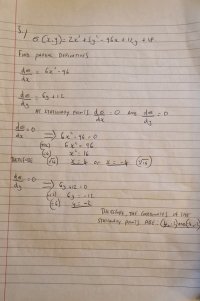 5.) σ(x,y) = 2x³ + 3y² - 96x + 12y + 18
FIND PARTIAL DERIVATIVES
dσ/dx = 6x² - 96
dσ/dy = 6y + 12
AT STATIONARY POINTS dσ/dx = 0 AND dσ/dy = 0
dσ/dx = 0 ⟹ 6x² - 96 = 0
(+96) 6x² = 96
(÷6) x² = 16
(√16) x = 4 or x = -4 (√16)
dσ/dy = 0 ⟹ 6y + 12 = 0
(-12) 6y = -12
(÷6) y = -2
THEREFORE THE COORDINATES OF THE
STATIONARY POINTS ARE